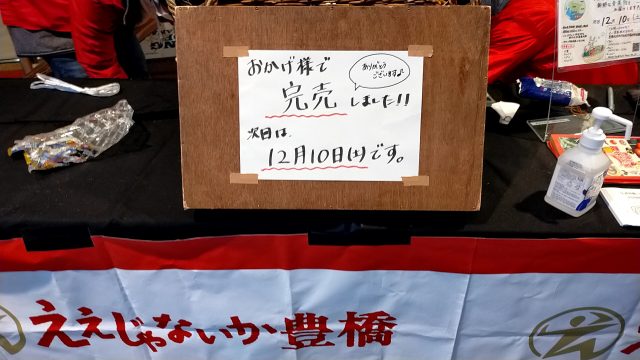 おかげ様で
ありがとう
ございます♪
完売しました!!
次回は、
12月10日(土)です。
12月10日
ええじゃないか豊橋